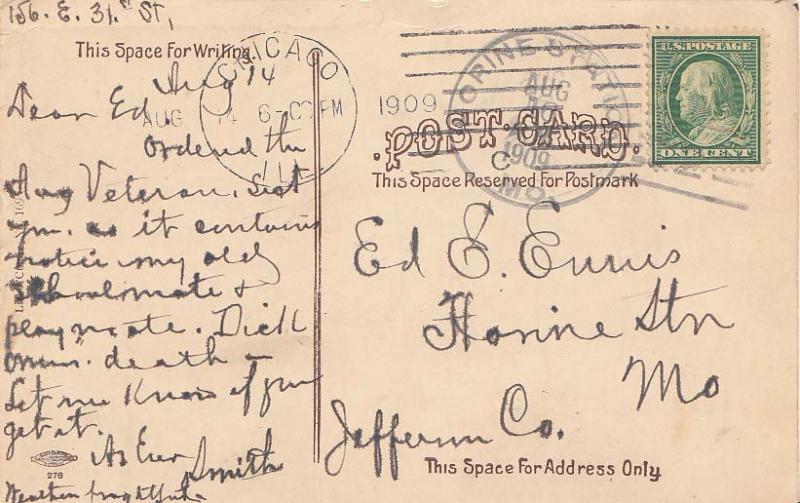 156. E. 31st St,
This Space For Writing.
Aug 14
Dear Ed
Ordered the
Aug Veteran. Sent
you. as it contains
notice my old
schoolmate &
playmate. Dick
death -
Let me Know if you
get it.
As Ever
Smith
Weather frightful.
278
CHICAGO
AUG 14 6-PM
ILL
1909
HORINE STATION
AUG
1909
MO.
U.S. POSTAGE
ONE CENT
POST CARD.
This Space Reserved For Postmark
Ed E. Ennis
Horine Stn
Mo
Jefferson Co.
This Space For Address Only